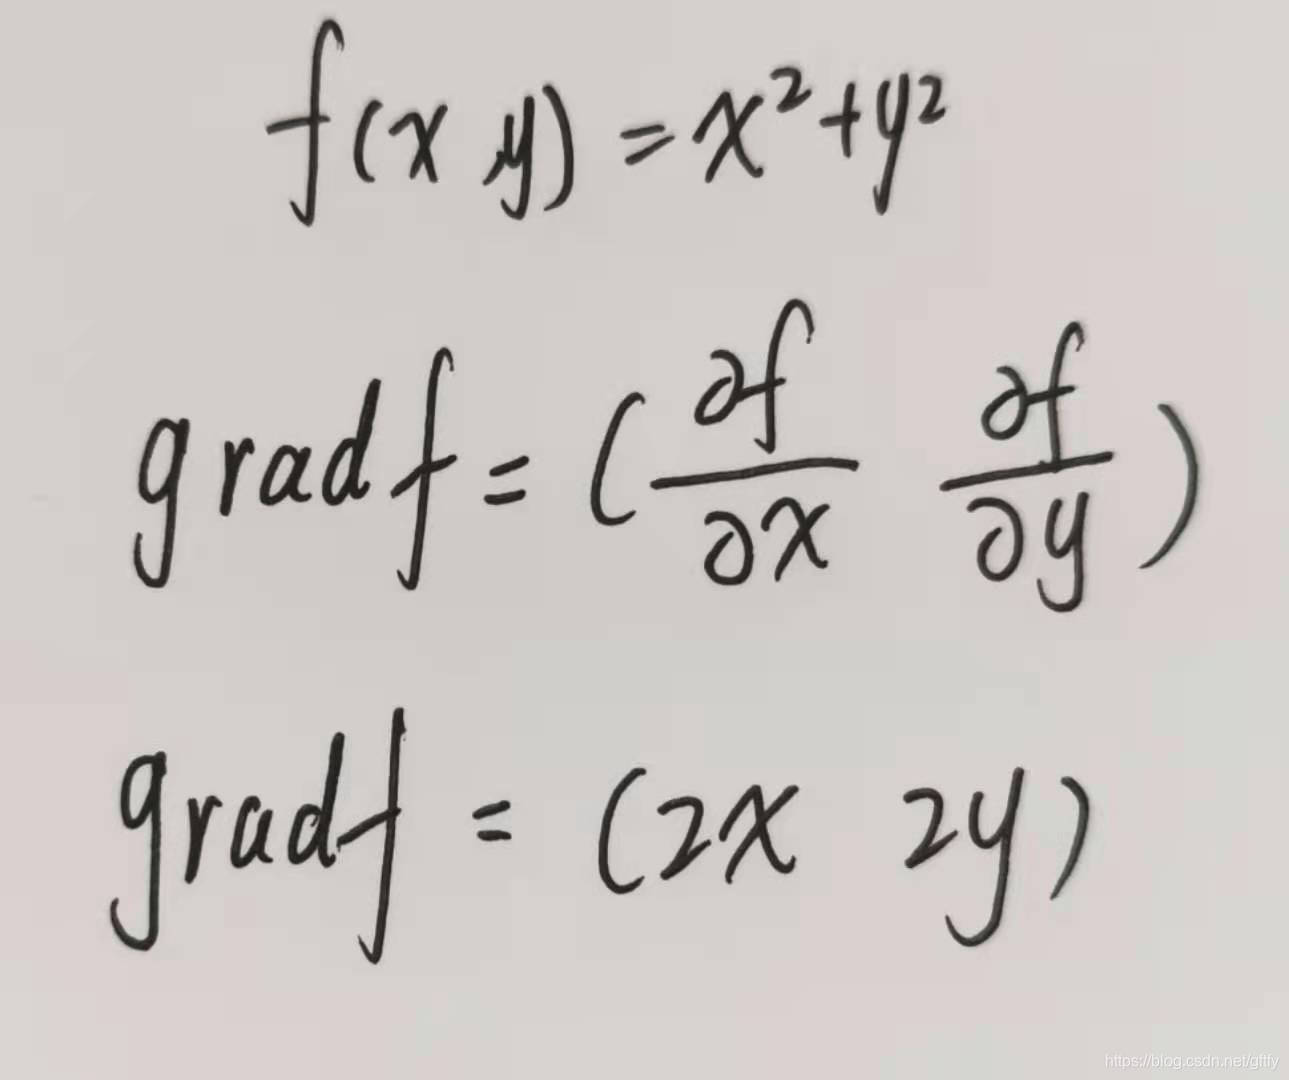 f(x,y)=x²+y²
gradf=(∂f/∂x ∂f/∂y)
gradf=(2x 2y)
https://blog.csdn.net/gftfy